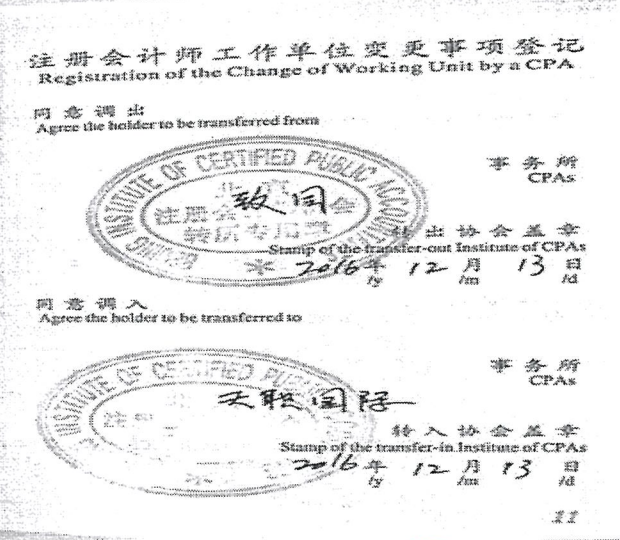 注册会计师工作单位变更事项登记
Registration of the Change of Working Unit by a CPA
同意调出
Agree the holder to be transferred from
致同
事务所
CPAs
BEIJING INSTITUTE OF CERTIFIED PUBLIC ACCOUNTANTS
北京
注册会计师协会
转所专用章
转出协会盖章
Stamp of the transfer-out Institute of CPAs
2016年 12月 13日
/y /m /d
同意调入
Agree the holder to be transferred to
天职国际
事务所
CPAs
INSTITUTE OF CERTIFIED
转入协会盖章
Stamp of the transfer-in Institute of CPAs
2016年 12月 13日
/y /m /d
11